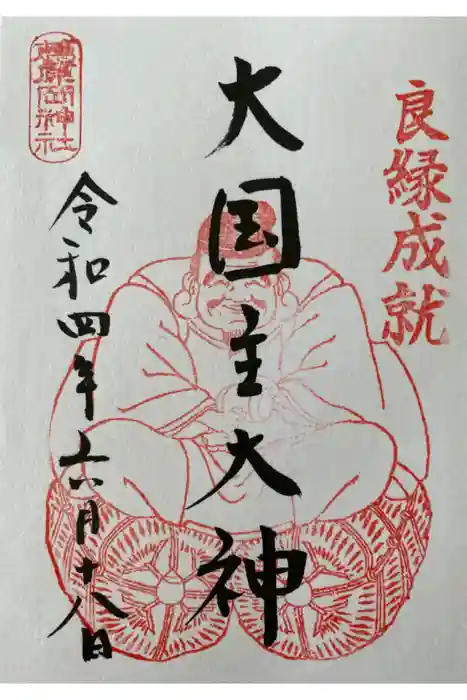 良縁成就
大国主大神
令和四年六月十八日